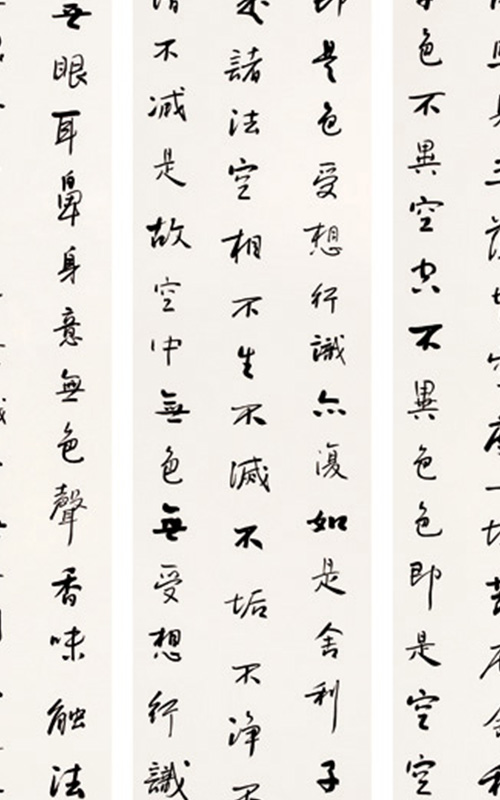 照見五蘊皆空度一切苦厄舍利
子色不異空空不異色色即是空空
即是色受想行識亦復如是舍利子
是諸法空相不生不滅不垢不淨不
增不減是故空中無色無受想行識
無眼耳鼻身意無色聲香味觸法